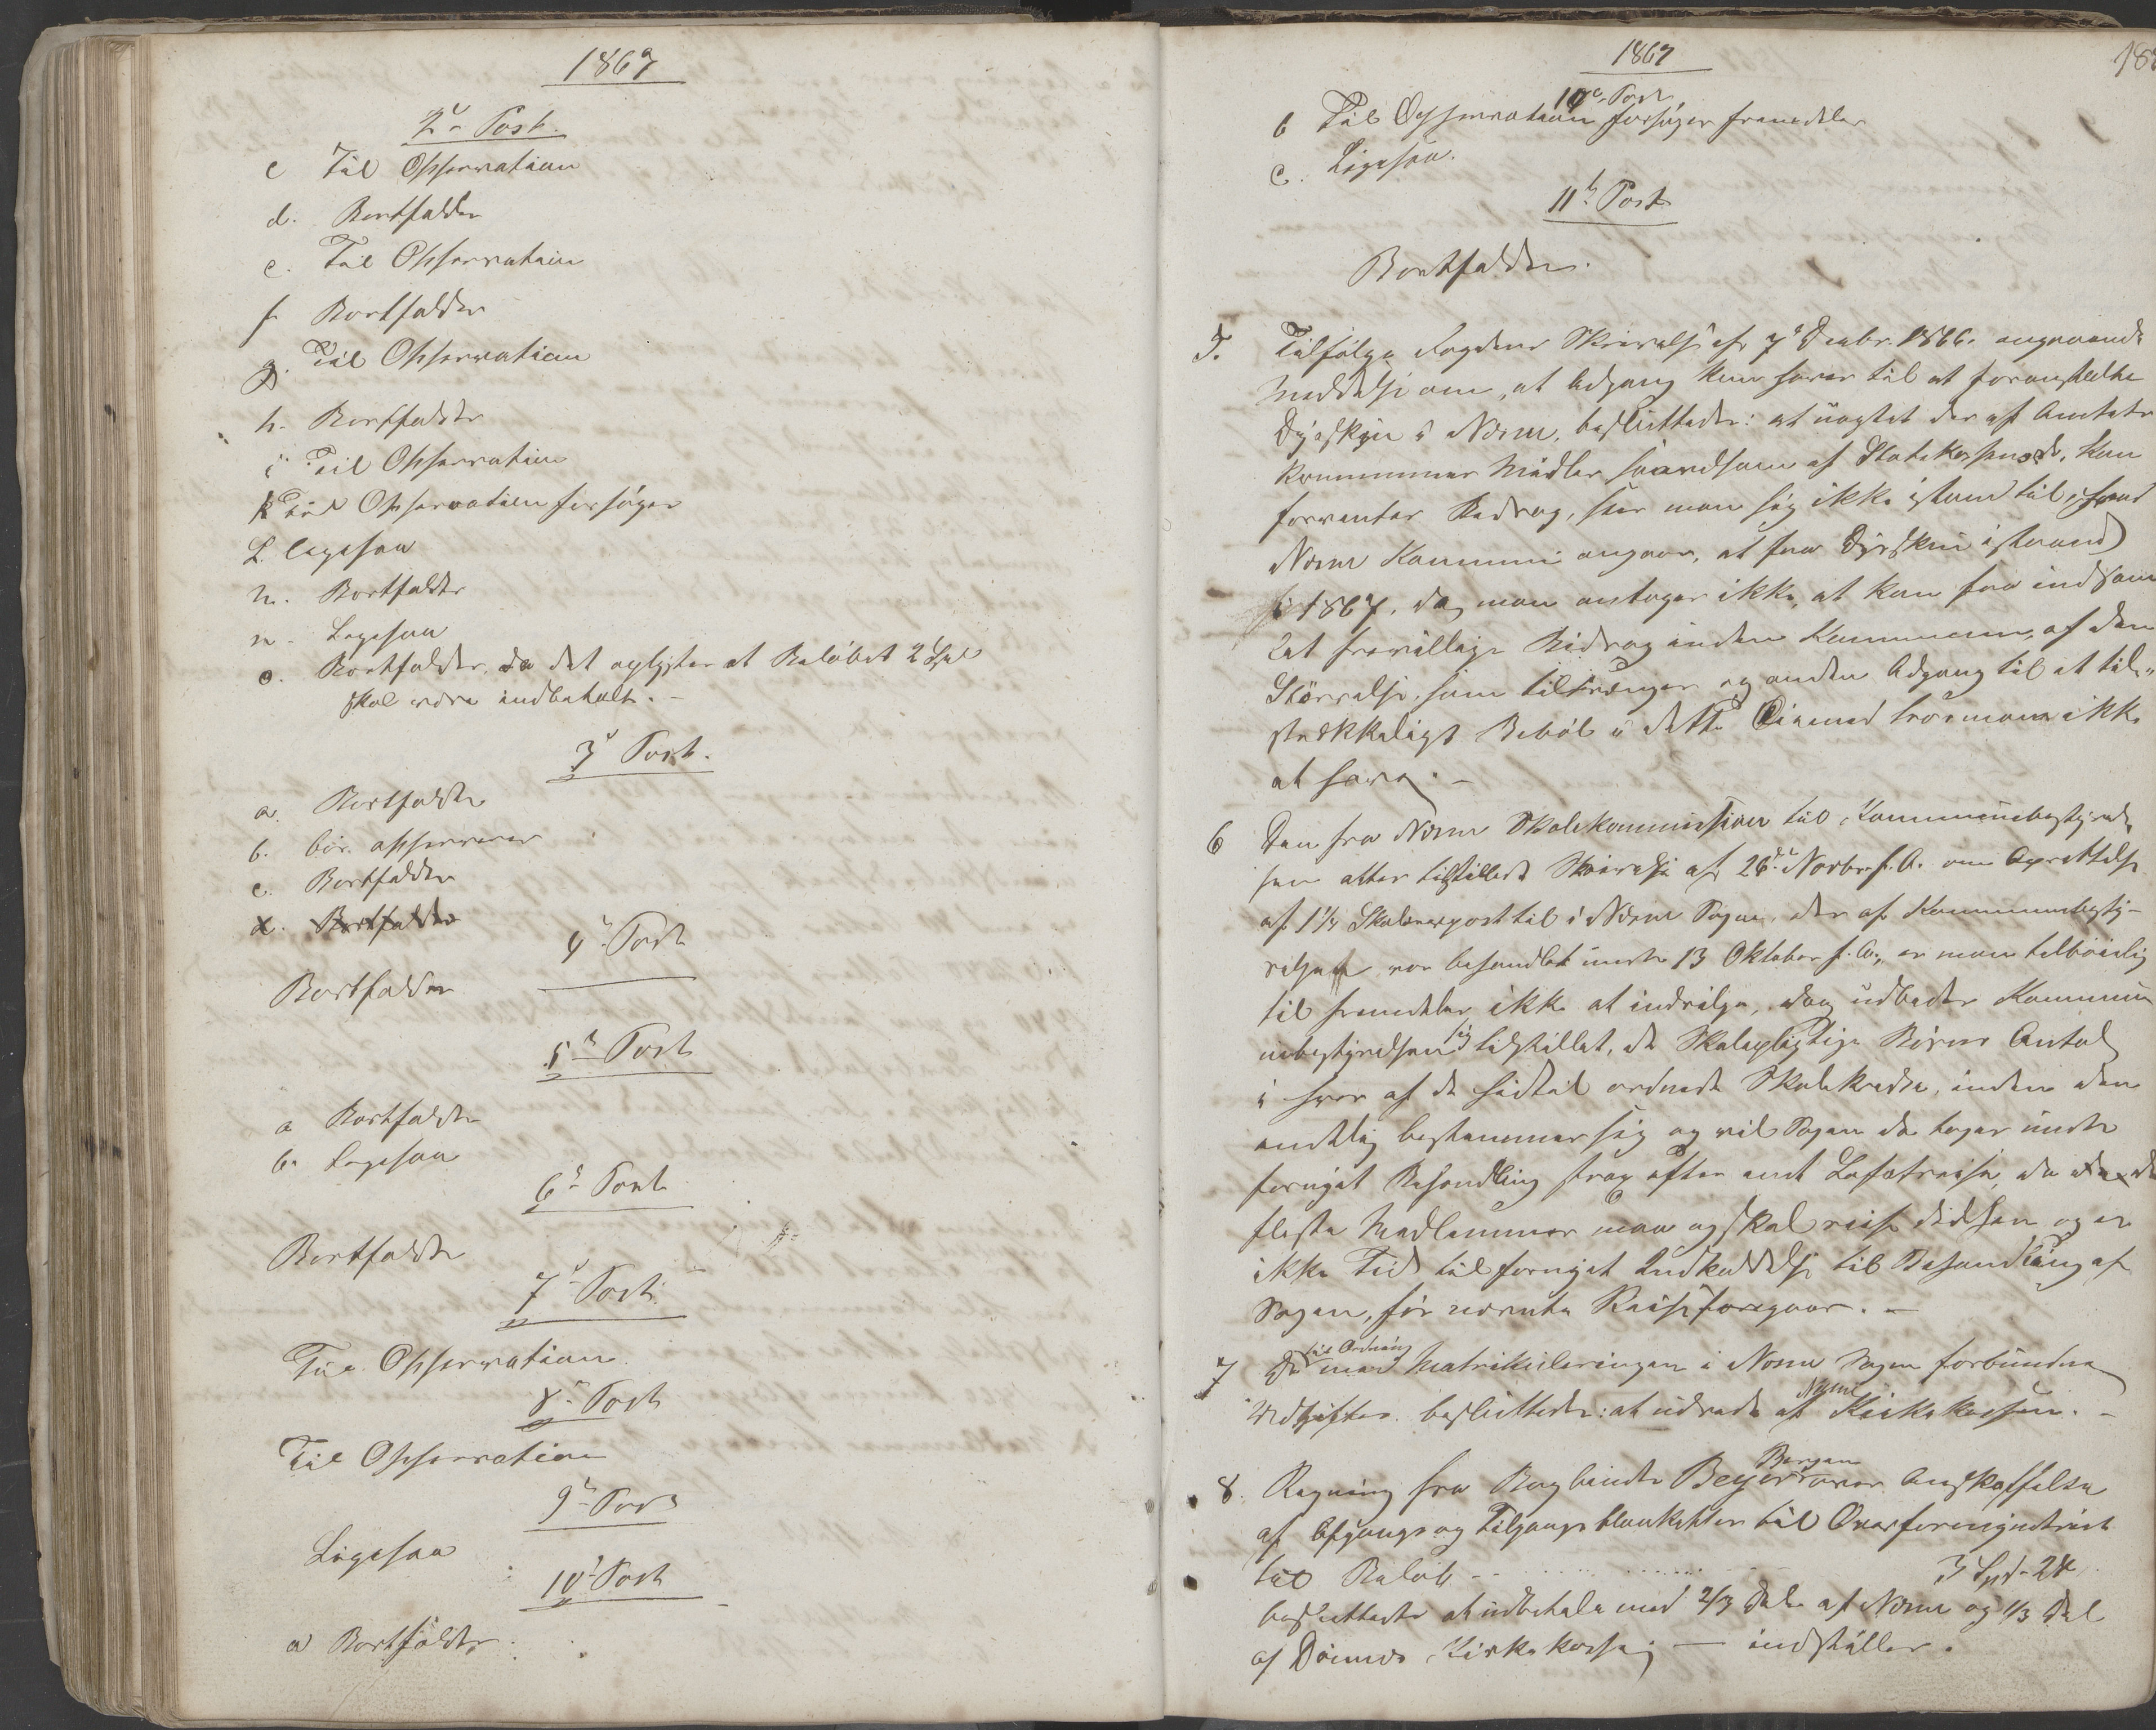 1867
2den Post.
c Til Observation
d. Bortfalder
e. Til Observation
f Bortfalder
g. Til Observation
h. Bortfalder
i Til Observation
k Til Observation forsøges
L. ligesaa
m. Bortfalder
n. Ligesaa
o. Bortfalder, da det oplyses at Beløbet 2 Spd
skal være indbetalt. -
3d Post.
a. Bortfalder
b. bør observeres
c. Bortfalder
d. Bortfalder
4de Post
Bortfalder
5te Post
a Bortfalder
b. Ligesaa
6te Post
Bortfalder
7de Post
Til Observation.
8de Post
Til Observation
9de Post
Ligesaa
10de Post
a Bortfalder.
1867
10de Post
b Til Observation forsøges fremdeles
c. Ligesaa.
11te Post
Bortfalder.
5. Tilfølge Fogdens Skrivelse af 7de Decbr. 1866. angaaende
Meddelse om, at Adgang kun haves til at foranstalte
Dyrskue i Norm, besluttedes: at uagtet der af Amtets
Kommunes Midler saavelsom af Statskassen, kan
forventes Bidrag, seer man sig ikke istand til, hvad
Kommune angaar, at faa Dyrskue istand
i 1867, da man antager ikke, at kan faa indsam
let frivillige Bidrag inden Kommunen, af den
Størrelse, som tiltrænges og anden Adgang til at til-
strækkeligt Beløb i dette Øiemed troer man ikke
at have. -
6 Den fra Skolekommission til Kommunebestyrel
sen atter tilstillede Skrivelse af 26de Novbr. f. A. om Oprettelse
af 1 Skolelærerpost til i Sogn, der af Kommunebesty-
relsen var behandlet under 13 Oktober f. A., er man tilbøielig
til fremdeles ikke at indvilge, dog udbeder Kommu
nebestyrelsen sig tilstillet, de Skolepligtige Børns Antal
i hver af de hidtil ordnede Skolekredse, inden den
endelig bestemmer sig og vil Sagen da tages under
fornyet Behandling strax efter endt Lofotreise, da de
fleste Medlemmer maa og skal reise didhen og er
ikke Tid til fornyet Indkaldelse til Behandling af
Sagen, før nævnte Reise foregaar. -
7 De til Ordning med Matrikuleringen i Sogn forbundne
Udgifter besluttedes: at udrede af Kirkekassen. -
8. Regning fra Bogbinder Beyer Bergen over Anskaffelse
af Afgangs og Tilgangs blanketter til Overformynderiet
til Beløb - - . . . . . . . . 3 Spd. 24
besluttedes at udbetale med 2/3 Dele af og 1/3 Del
af Kirkekasse, - indstilles.